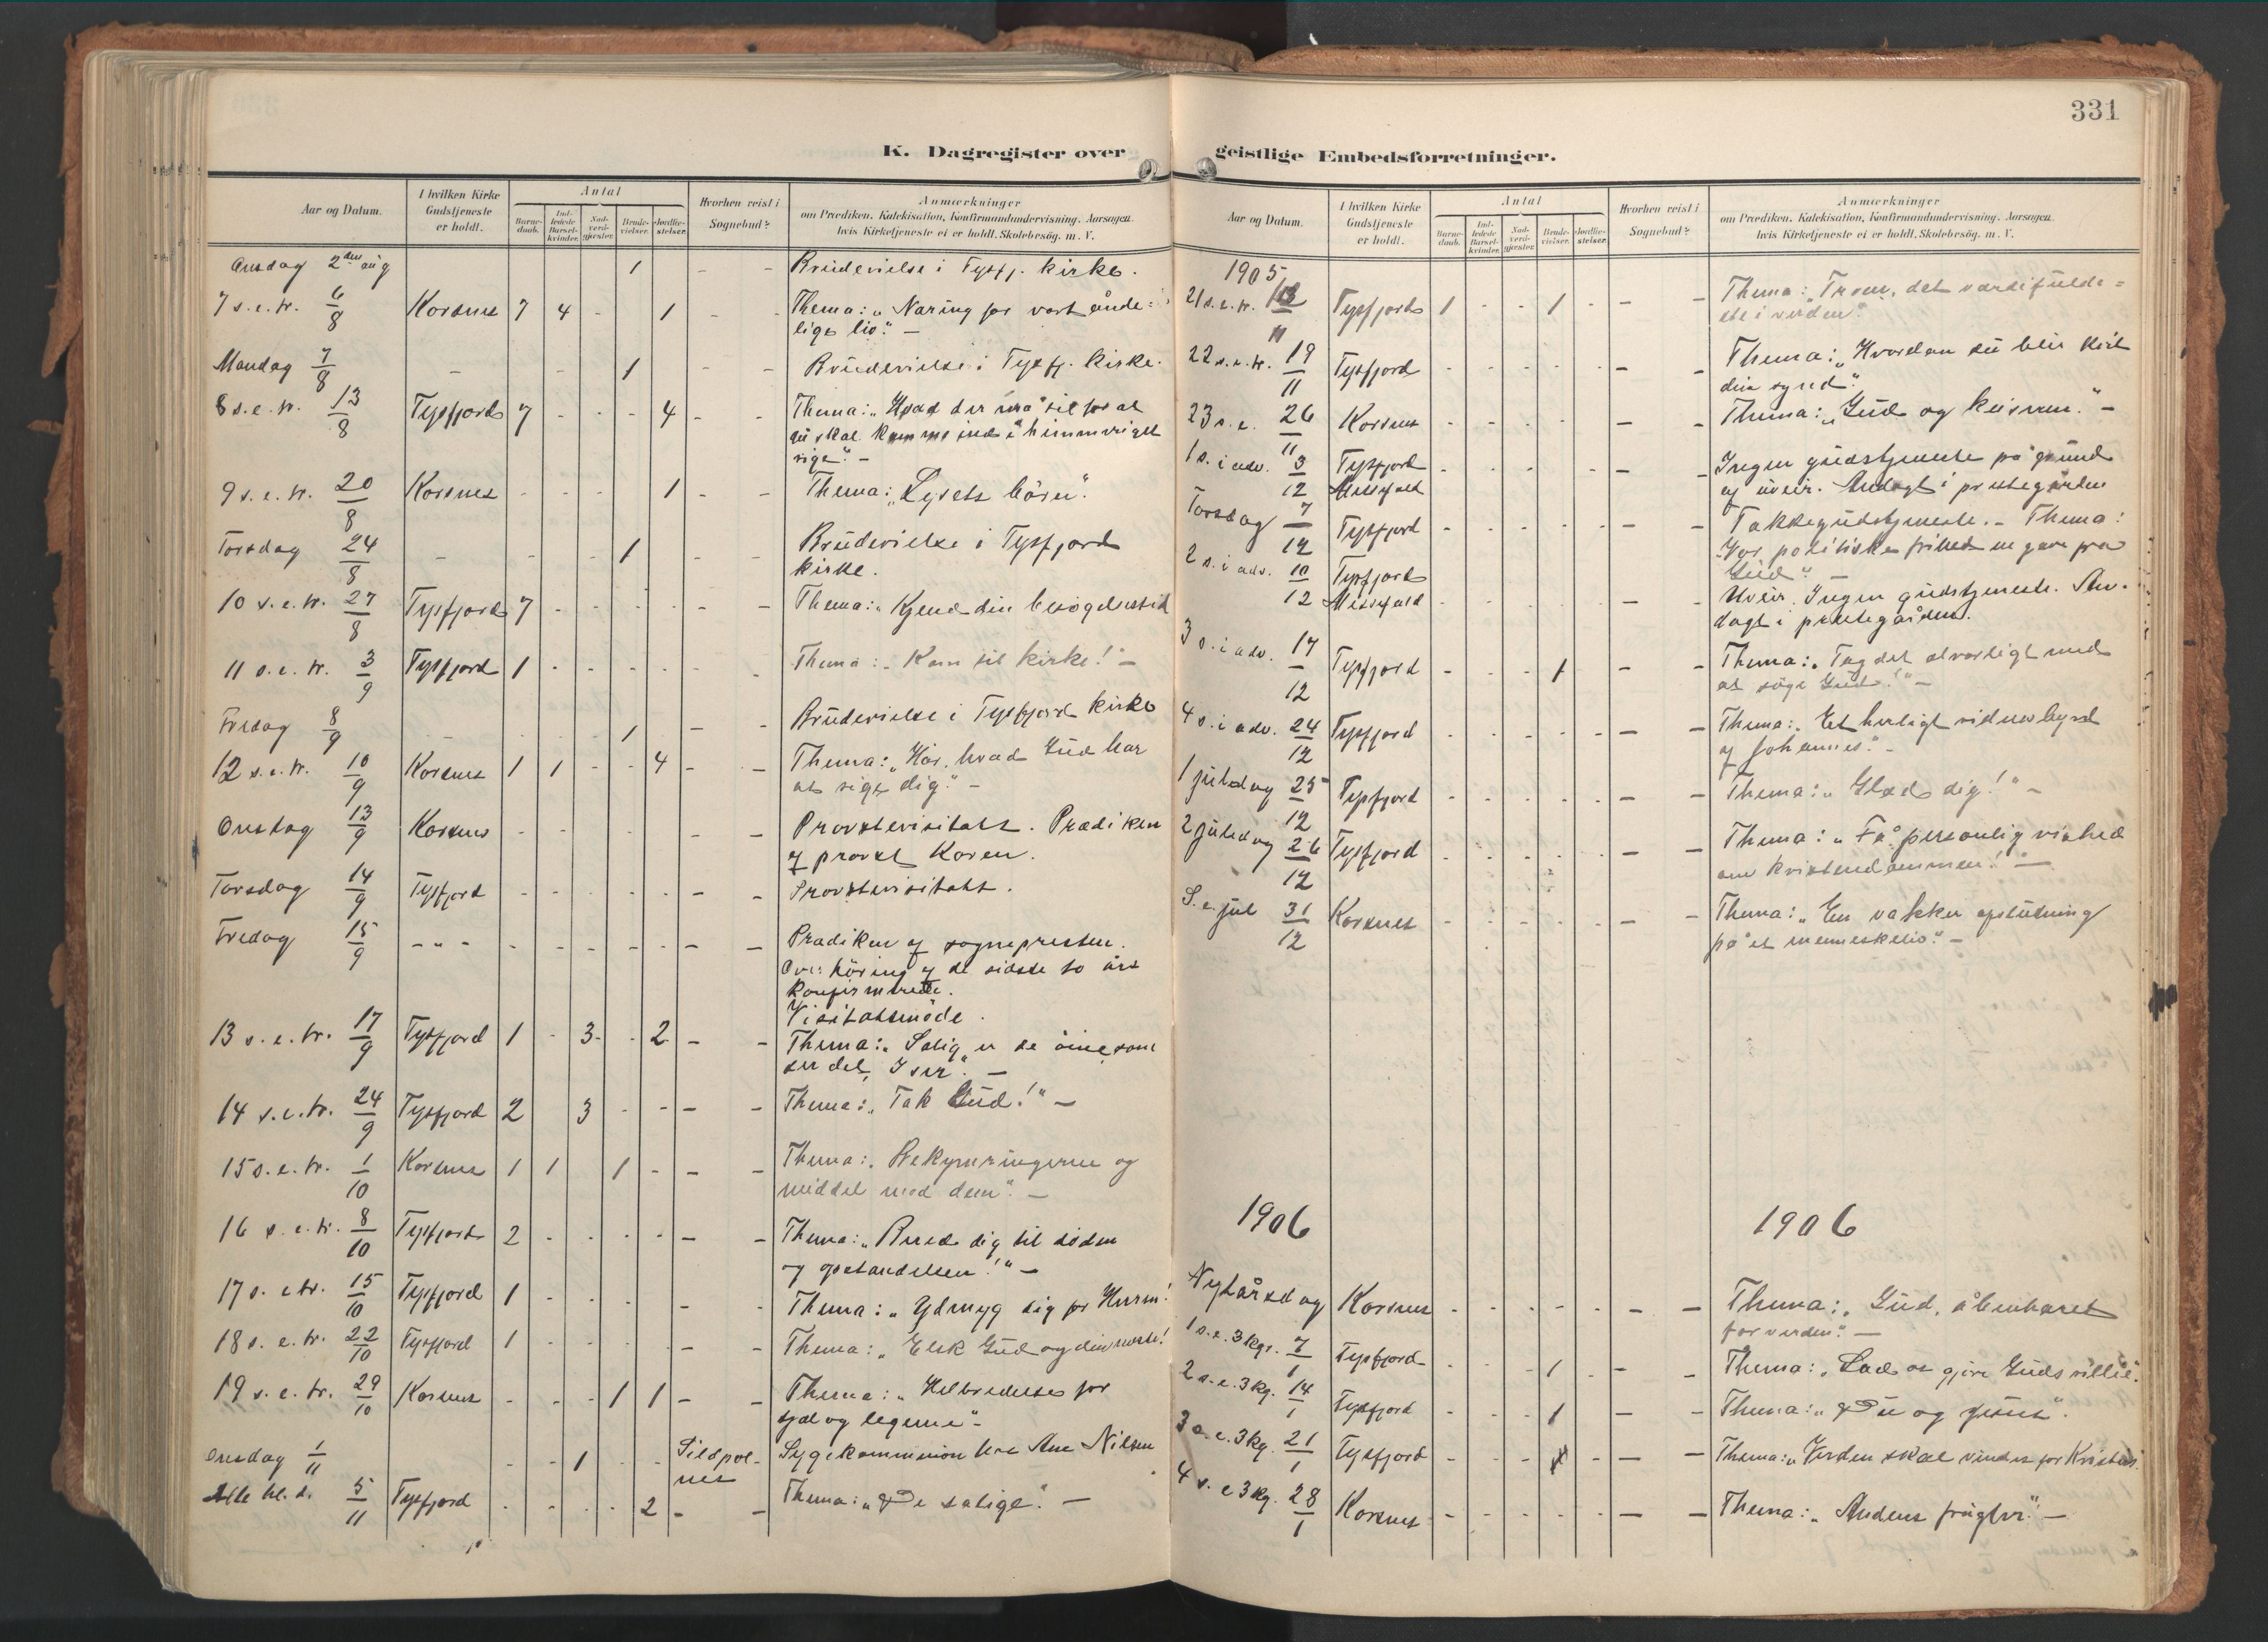 331
K. Dagregister over
geistlige Embedsforretninger.
Aar og Datum.
I hvilken Kirke
Gudstjeneste
er holdt.
Antal
Barne-
daab.
Ind-
ledede
Barsel-
kvinder.
Nad-
verd-
gjester.
Brude-
vielser.
Jordfæ-
stelser.
Hvorhen reist i
Sognebud?
Anmærkninger
om Prædiken. Katekisation, Konfirmandundervisning. Aarsagen.
hvis Kirketjeneste ei er holdt. Skolebesøg. m. V.
Onsdag 2den aug 1 - - Brudevielse i Tysfj. kirke.
7 s.e.tr. 6/8 Korsnes 7 4 - 1 - - Thema: „Næring for vort ånde-
lige liv." —
Mandag 7/8 - - 1 - - Brudevielse i Tysfj. kirke.
8 s.e.tr. 13/8 Tysfjord 7 - - - 4 - - Thema: „Hvad der må til for at
du skal komme ind i himmeriget
rige". -
9 s.e.tr. 20/8 Korsnes - - - - 1 - - Thema: „Lysets börn".
Torsdag 24/8 - - - 1 - - Brudevielse i Tysfjord
kirke.
10 s.e.tr. 27/8 Tysfjord 7 - - - - - - Thema: „Kjend din besøgelsestid
11 s.e.tr. 3/9 Tysfjord 1 - - - - - - Thema: „Kom til kirke!" -
Fredag 8/9 - - - 1 - - Brudevielse i Tysfjord kirke
12 s.e.tr. 10/9 Korsnes 1 1 - - 4 - - Thema: „Hör, hvad Gud har
at sige dig." -
Onsdag 13/9 Korsnes - - - - - - Provstevisitats. Prædiken
af provst Koren.
Torsdag 14/9 Tysfjord - - - - - - - Provstevisitats.
Fredag 15/9 - " - - - - - - - - Prædiken af sognepresten.
Overhöring af de sidste to års
konfirmerede.
Visitatsmöde.
13 s.e.tr. 17/9 Tysfjord 1 - 3 - 2 - - Thema: „Salig er de öine som
ser det, I ser". —
14 s.e.tr. 24/9 Tysfjord 2 3 - - - - Thema: „Tak Gud!" —
15 s.e.tr. 1/10 Korsnes 1 1 1 - - - Thema: „Bekymringerne og
middel mod dem". —
16 s.e.tr. 8/10 Tysfjord 2 - - - - - - Thema: „Bered dig til döden
og opstandelsen!" —
17 s.etr. 15/10 Tysfjord 1 - - - - - - Thema: „Ydmyg dig for Herren!
18 s.e.tr. 22/10 Tysfjord 1 - - - - - - Thema: „Elsk Gud og din næste!
19 s.e.tr. 29/10 Korsnes - - - 1 1 - - Thema: „Helbredelse for
sjæl og legeme" -
Onsdag 1/11 - - 1 - - Sildpol-
nes Sygekommunion hos Ane Nilsen
Alle hl. d. 5/11 Tysfjord - - - - 2 - - Thema: „De salige". —
Aar og Datum.
I hvilken Kirke
Gudstjeneste
er holdt.
Antal
Barne-
daab.
Ind-
ledede
Barsel-
kvinder.
Nad-
verd-
gjester.
Brude-
vielser.
Jordfæ-
stelser.
Hvorhen reist i
Sognebud?
Anmærkninger
om Prædiken. Katekisation, Konfirmandundervisning. Aarsagen.
hvis Kirketjeneste ei er holdt. Skolebesøg. m. V.
1905
21 s.e.tr. 12/11 Tysfjord 1 - - 1 - - - Thema: „Troen, det værdifulde-
ste i verden".
22 s.e.tr. 19/11 Tysfjord - - - - - - - Thema: „Hvordan du blir kvit
din synd".
23 s.e. 26/11 Korsnes - - - - - - - Thema: „Gud og keiseren." -
1 s. i adv. 3/12 Tysfjord
Messefald - - - - - - - Ingen gudstjeneste på grund
af uveir. Andagt i prestegården
Torsdag 7/12 Tysfjord - - - - - - - Takkegudstjeneste. - Thema:
„Vor politiske frihed en gave fra
Gud".
2 s. i adv. 10/12 Tysfjord
Messefald - - - - - - - Uveir. Ingen gudstjeneste. An-
dagt i prestegården.
3 s. i adv. 17/12 Tysfjord - - - 1 - - - Thema: „Tag det alvorligt med
at söge Gud!" -
4 s. i adv. 24/12 Tysfjord - - - - - - - Thema: „Et herligt vidnesbyrd
af Johannes." -
1 juledag 25/12 Tysfjord - - - - - - - Thema: „Glæd dig!" -
2 juledag 26/12 Tysfjord - - - - - - - Thema: „Få personlig vished
om kristendommen!" —
S.e.jul 31/12 Korsnes - - - - - - - Thema: „En vakker afslutning
på et menneskeliv." -
1906
1906
Nytårsdag Korsnes - - - - - - - Thema: „Gud, åbenbaret
for verden". —
1 s.e. 3kgr. 7/1 Tysfjord - - - 1 - - - Thema: „Lad os gjöre Guds villie".
2 s.e. 3kg. 14/1 Tysfjord - - - 1 - - - Thema: „Du og Jesus".
3 s.e. 3kg. 21/1 Tysfjord - - - - - - Thema: „Verden skal vindes for Kristus.
4 s.e 3kg. 28/1 Korsnes - - - - - - - Thema: „Åndens frugter." —